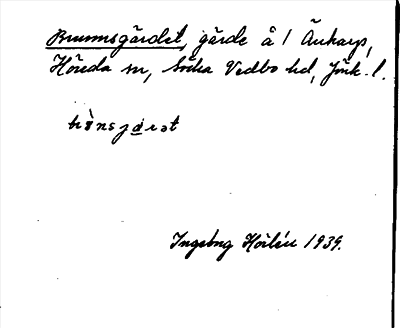 Brunnsgärdet, gärde å 1 Änkarp,
Höreda sn, Södra Vedbo hd, Jönk. l.
Ingeborg Hörlén 1939.